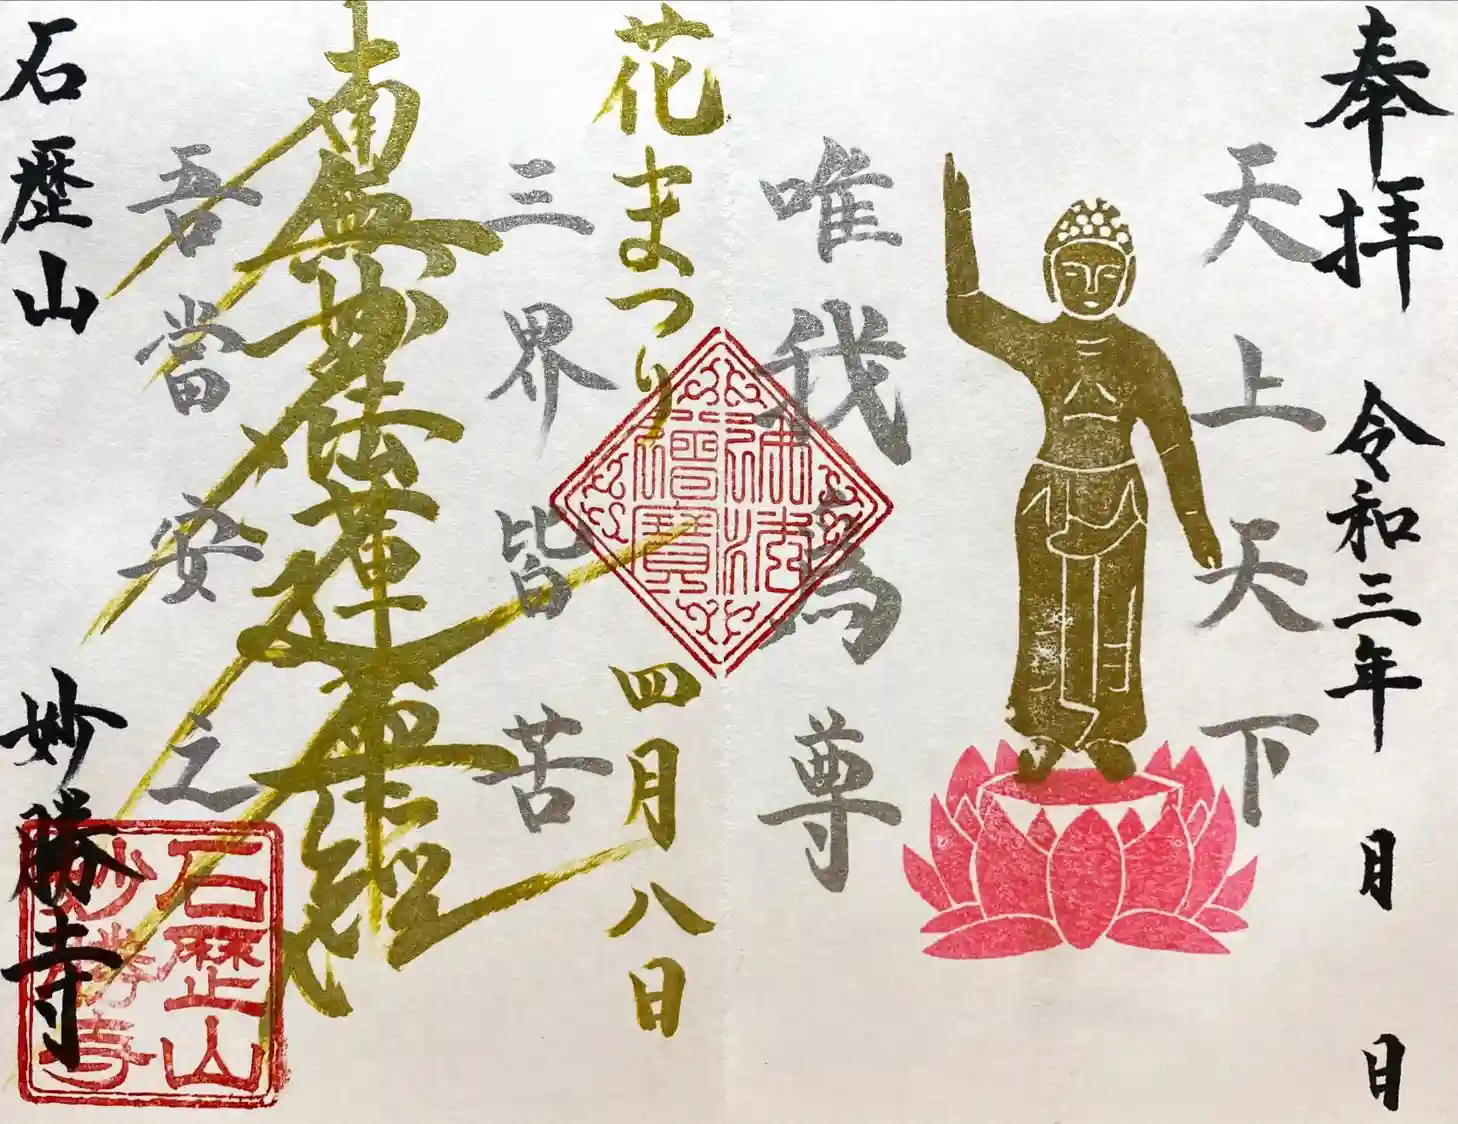 奉拝 令和三年 月 日
天上天下
唯我為尊
花まつり 四月八日
三界皆苦
南無妙法蓮華経
吾當安之
石歴山 妙勝寺
石歴山
妙勝寺